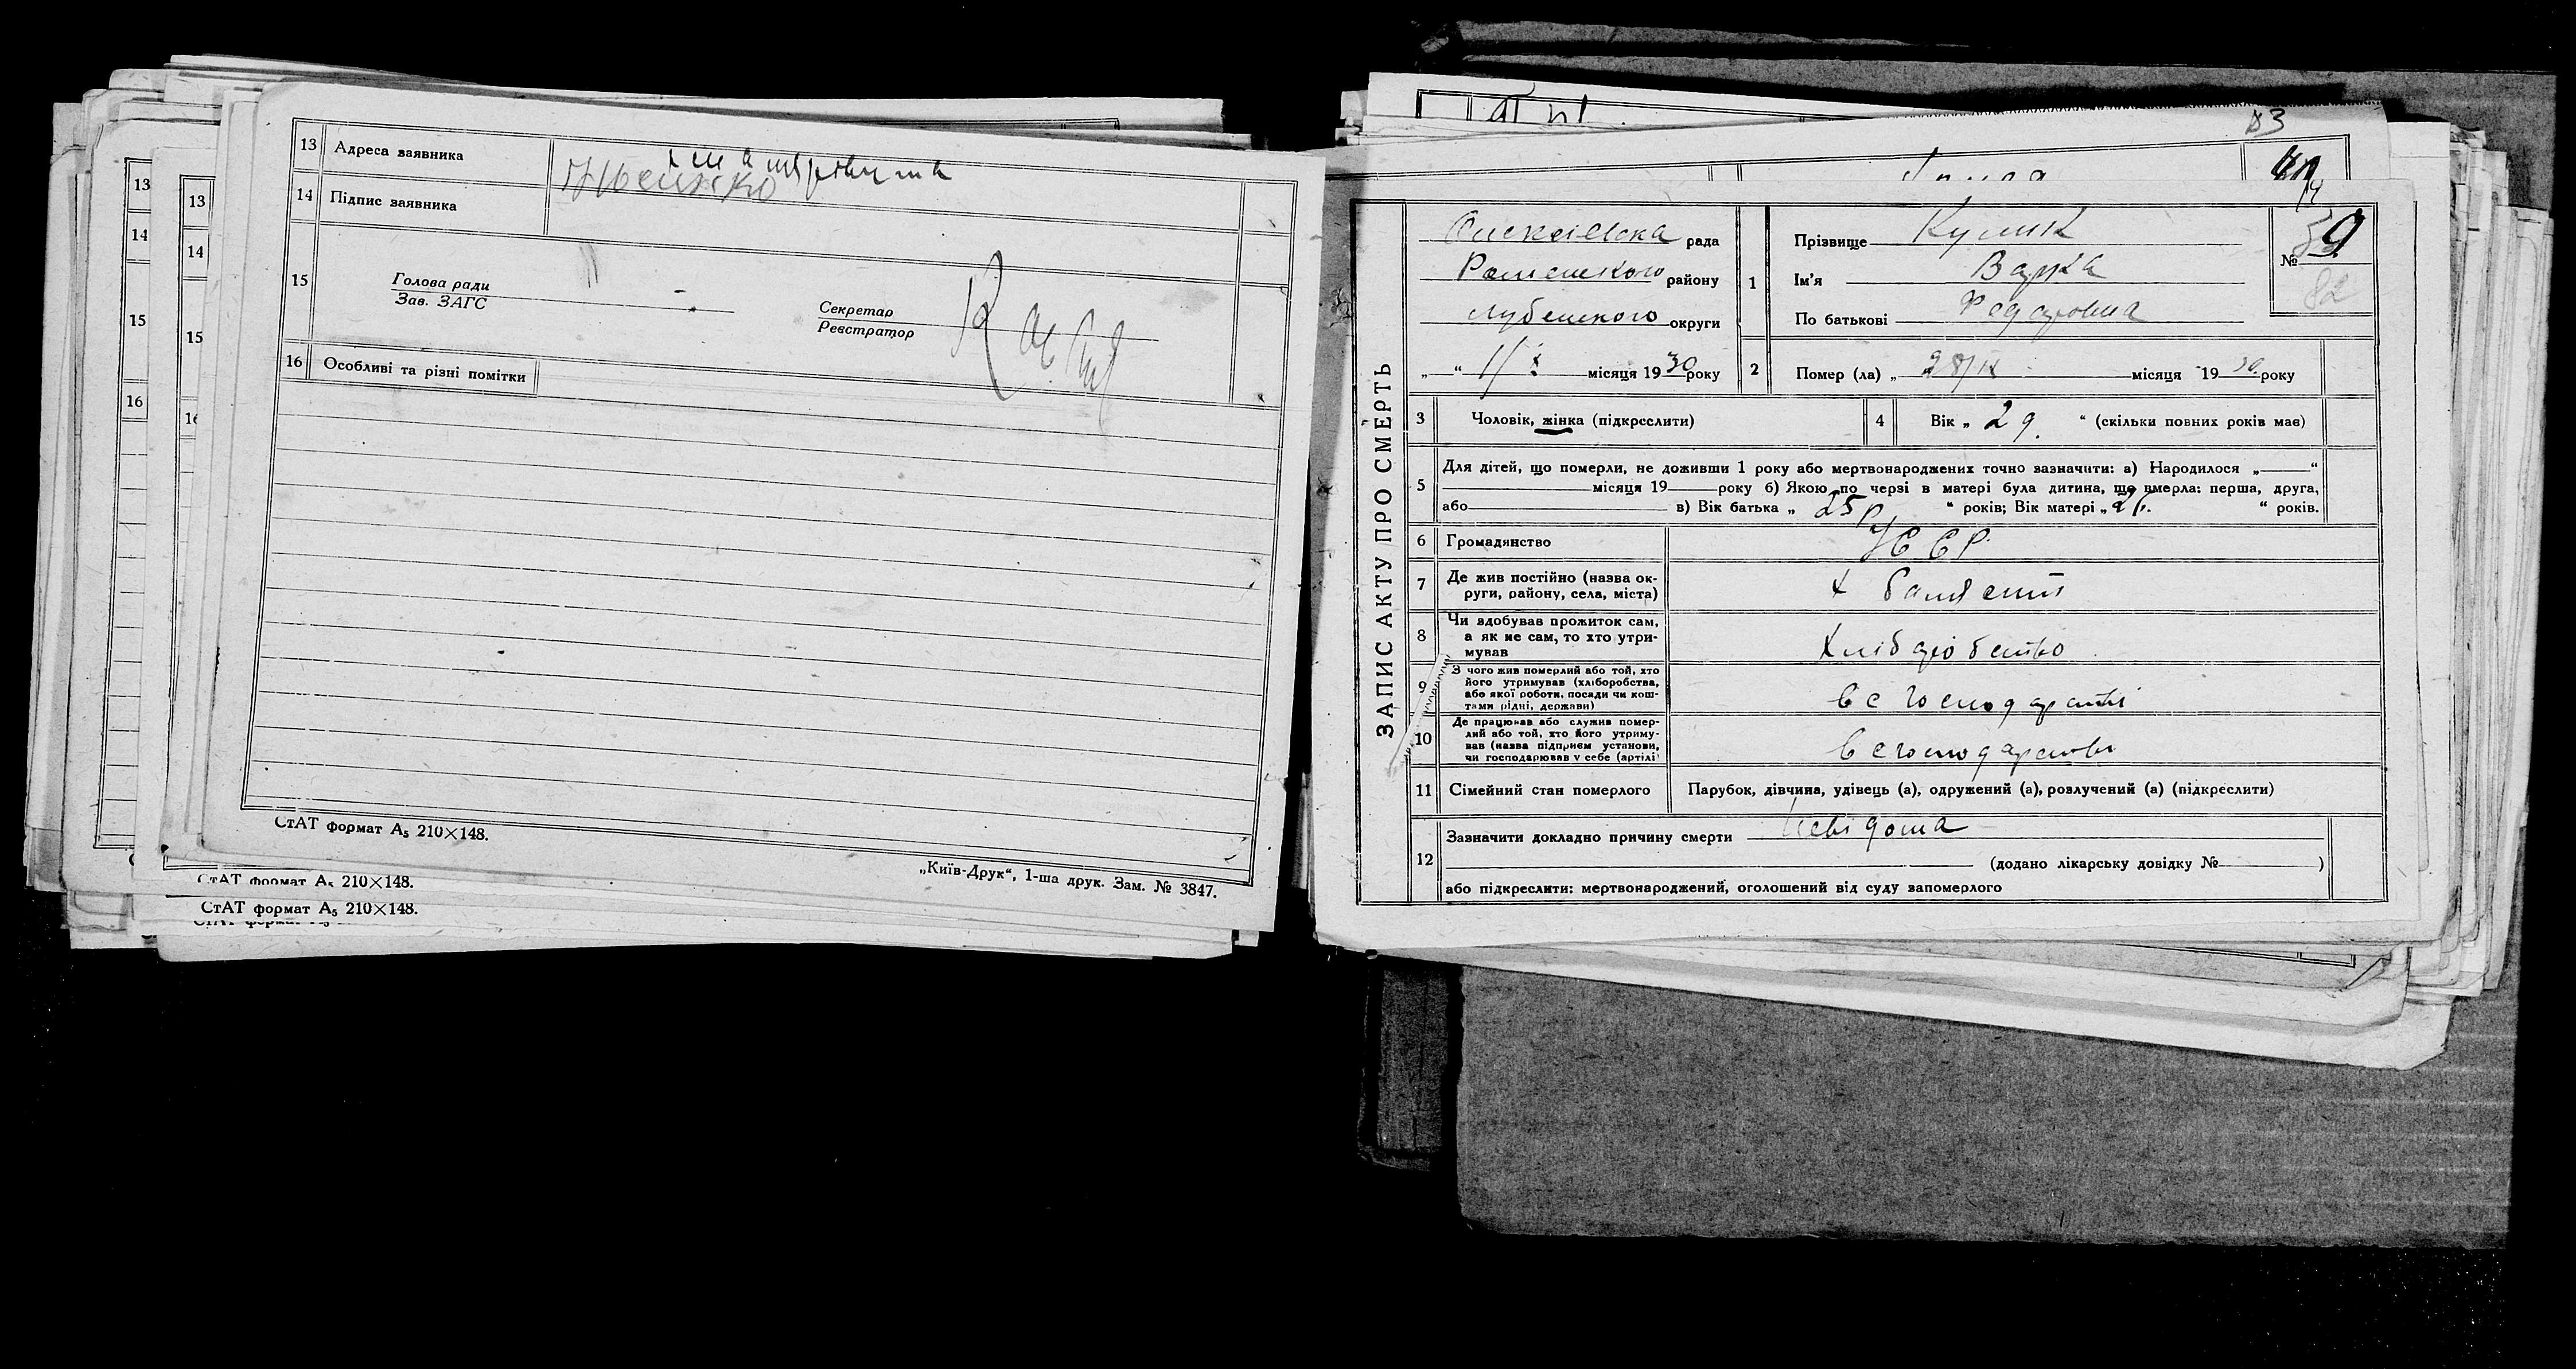 13 Адреса заявника
14 Підпис заявника
15
Голова ради
Зав. ЗАГС
Секретар
Реєстратор
16 Особливі та різні помітки
СтАТ формат А₅ 210×148.
„Київ-Друк“, 1-ша друк. Зам. № 3847.
13
14
15
16
13
14
15
СтАТ формат А₅ 210×148.
СтАТ формат А₅ 210×148.
83
ЗАПИС АКТУ ПРО СМЕРТЬ
рада
району
Лубенського округи
„ “ 1/X місяця 1930 року
1
Прізвище Кулик
Ім'я Варка
По батькові Федоровна
№ 59
82
2 Помер (ла) „ 28/IX місяця 1930 року
3 Чоловік, жінка (підкреслити)
4 Вік „ 2 “ (скільки повних років має)
5 Для дітей, що померли, не доживши 1 року або мертвонароджених точно зазначити: а) Народилося „ “
місяця 19 року б) Якою по черзі в матері була дитина, що вмерла: перша, друга,
або в) Вік батька „ 25 р “ років; Вік матері „ “ років.
6 Громадянство УССР
7 Де жив постійно (назва ок-
руги, району, села, міста)
х
8 Чи здобував прожиток сам,
а як не сам, то хто утри-
мував
Хліборобство
9 З чого жив померлий або той, хто
його утримував (хліборобства,
або якої роботи, посади чи кош-
тами рідні, держави)
в с господарстві
10 Де працював або служив помер-
лий або той, хто його утриму-
вав (назва підприєм установи,
чи господарював у себе (артілі)
в с господарстві
11 Сімейний стан померлого Парубок, дівчина, удівець (а), одружений (а), розлучений (а) (підкреслити)
12 Зазначити докладно причину смерти Невідома
(додано лікарську довідку № )
або підкреслити: мертвонароджений, оголошений від суду запомерлого